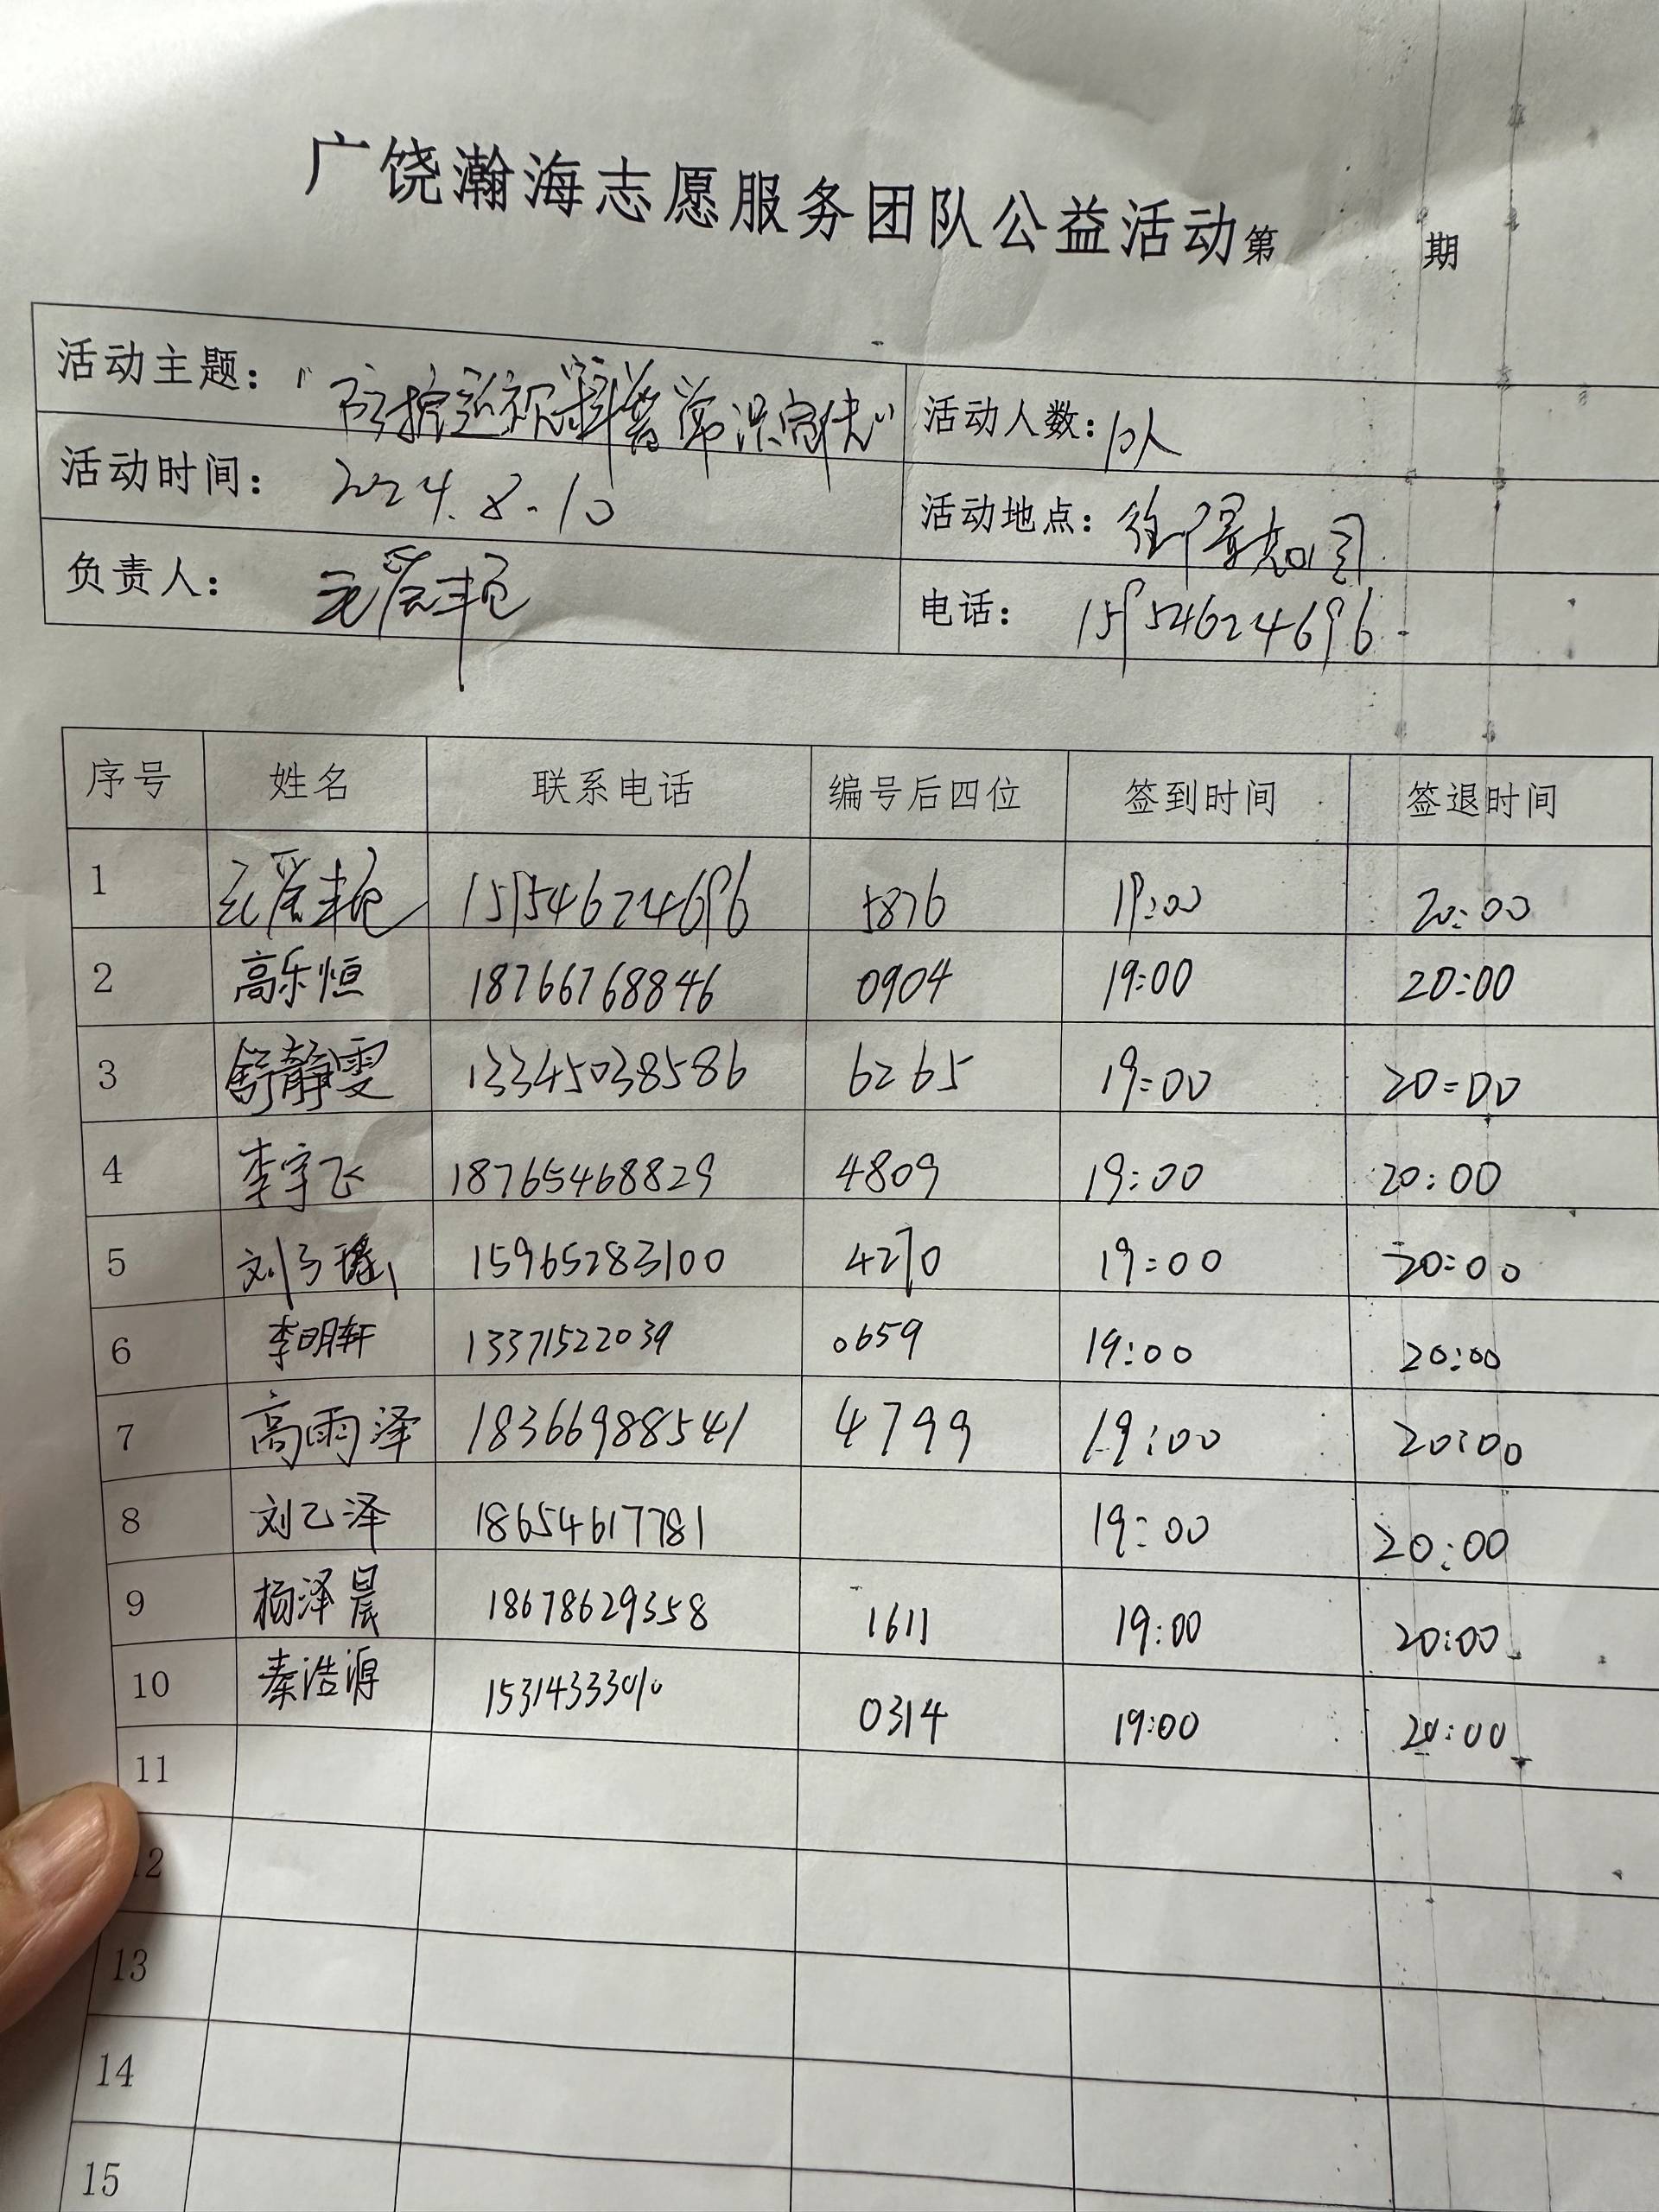 广饶瀚海志愿服务团队公益活动第 期
活动主题：“防护近视科普常识宣传” 活动人数：10人
活动时间：2024.8.10 活动地点：
负责人： 电话：15954624696
序号 姓名 联系电话 编号后四位 签到时间 签退时间
1 15954624696 5876 19:00 20:00
2 高乐恒 18766768846 0904 19:00 20:00
3 舒静雯 13345038586 6265 19:00 20:00
4 李宇飞 18765468829 4809 19:00 20:00
5 刘子瑶 15965283100 4270 19:00 20:00
6 李明轩 13371522039 0659 19:00 20:00
7 高雨泽 18366988541 4799 19:00 20:00
8 刘乙泽 18654617781 19:00 20:00
9 杨泽晨 18678629358 1611 19:00 20:00
10 秦浩源 15314333010 0314 19:00 20:00
11
12
13
14
15